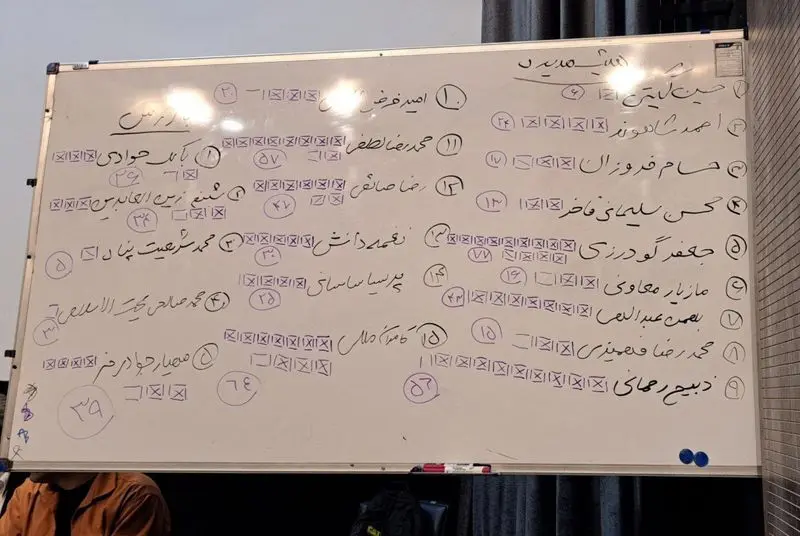 هیئت مدیره
۱ حسین لیتی ۶
۲ احمد شاهوند ۲۴
۳ حسام فروزان ۱۷
۴ محسن سلیمانی فاخر ۱۳
۵ جعفر گودرزی ۷۷
۶ مازیار معاونی ۱۶
۷ بهمن عبداللهی ۴۳
۸ محمدرضا فهمیزی ۱۵
۹ ذبیح رحمانی ۵۶
۱۰ امید ۲۰
۱۱ محمدرضا لطفی ۵۷
۱۲ رضا صائمی ۴۷
۱۳ نغمه دانش ۳۰
۱۴ پرسیا ساسانی ۲۵
۱۵ کامران ملکی ۶۴
بازرس
۱ بابک جوادی ۲۶
۲ زین العابدین ۳۴
۳ محمد شریعت پناه ۵
۴ محمد صالحی حجت الاسلامی ۳
۵ مهیار جوادی فر ۳۹